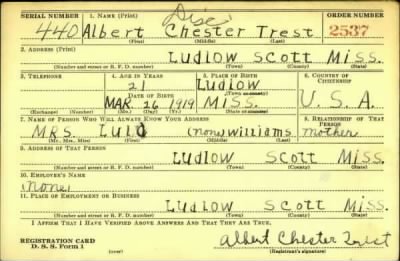 SERIAL NUMBER 1. NAME (Print) ORDER NUMBER
Dise
440 Albert Chester Trest 2537
(First) (Middle) (Last)
2. ADDRESS (Print)
Ludlow Scott Miss.
(Number and street or R. F. D. number) (Town) (County) (State)
3. TELEPHONE 4. AGE IN YEARS 5. PLACE OF BIRTH 6. COUNTRY OF CITIZENSHIP
21 Ludlow
DATE OF BIRTH (Town or county)
MAR. 26 1919 MISS. U. S. A.
(Exchange) (Number) (Mo.) (Day) (Yr.) (State or country)
7. NAME OF PERSON WHO WILL ALWAYS KNOW YOUR ADDRESS 8. RELATIONSHIP OF THAT PERSON
MRS. Lula (none) Williams mother
(Mr., Mrs., Miss) (First) (Middle) (Last)
9. ADDRESS OF THAT PERSON
Ludlow Scott Miss.
(Number and street or R. F. D. number) (Town) (County) (State)
10. EMPLOYER'S NAME
none
11. PLACE OF EMPLOYMENT OR BUSINESS
Ludlow Scott Miss.
(Number and street or R. F. D. number) (Town) (County) (State)
I AFFIRM THAT I HAVE VERIFIED ABOVE ANSWERS AND THAT THEY ARE TRUE.
REGISTRATION CARD
D. S. S. Form 1
Albert Chester Trest
(Registrant's signature)